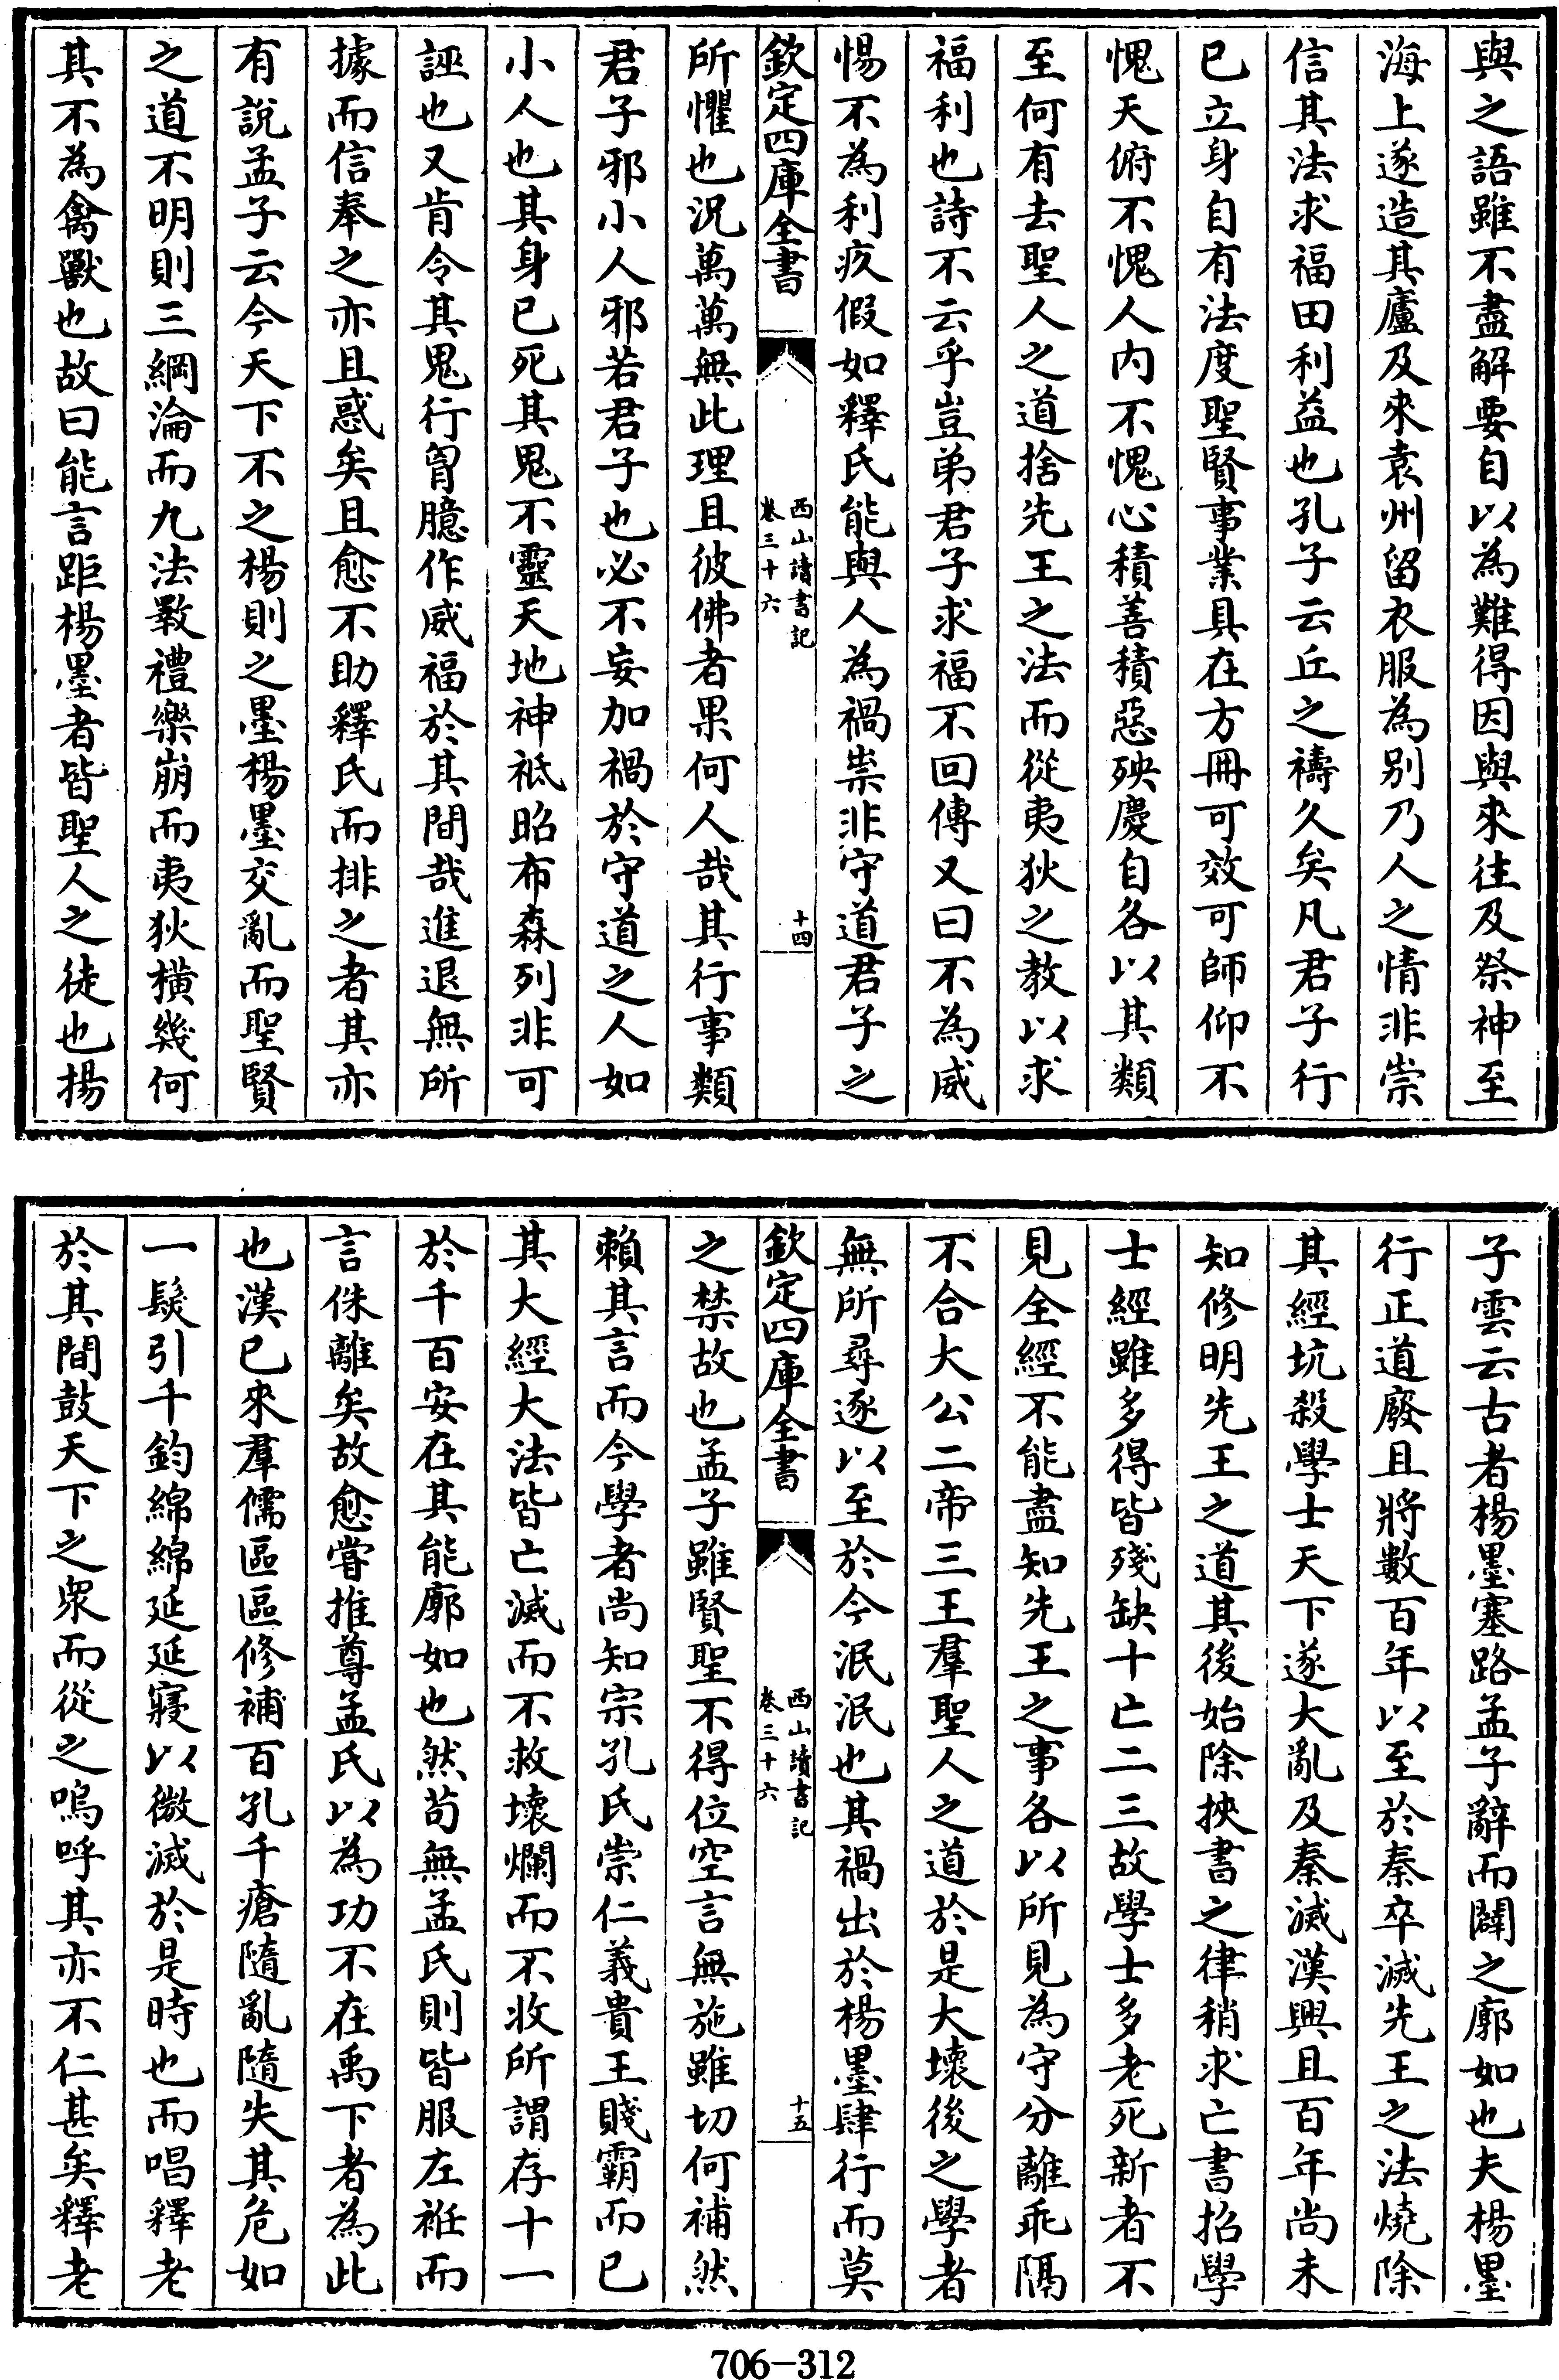 與之語雖不盡解要自以為難得因與來往及祭神至
海上遂造其廬及來袁州留衣服為别乃人之情非崇
信其法求福田利益也孔子云丘之禱久矣凡君子行
已立身自有法度聖賢事業具在方冊可效可師仰不
愧天俯不愧人内不愧心積善積惡殃慶自各以其類
至何有去聖人之道捨先王之法而從夷狄之教以求
福利也詩不云乎豈弟君子求福不回傳又曰不為威
惕不為利疚假如釋氏能與人為禍祟非守道君子之
欽定四庫全書
西山讀書記
卷三十六
十四
所懼也況萬萬無此理且彼佛者果何人哉其行事類
君子邪小人邪若君子也必不妄加禍於守道之人如
小人也其身已死其鬼不靈天地神祗昭布森列非可
誣也又肯令其鬼行胷臆作威福於其間哉進退無所
據而信奉之亦且惑矣且愈不助釋氏而排之者其亦
有說孟子云今天下不之楊則之墨楊墨交亂而聖賢
之道不明則三綱淪而九法斁禮樂崩而夷狄橫幾何
其不為禽獸也故曰能言距楊墨者皆聖人之徒也揚
子雲云古者楊墨塞路孟子辭而闢之廓如也夫楊墨
行正道廢且將數百年以至於秦卒滅先王之法燒除
其經坑殺學士天下遂大亂及秦滅漢興且百年尚未
知修明先王之道其後始除挾書之律稍求亡書招學
士經雖多得皆殘缺十亡二三故學士多老死新者不
見全經不能盡知先王之事各以所見為守分離乖隔
不合大公二帝三王羣聖人之道於是大壞後之學者
無所尋逐以至於今泯泯也其禍出於楊墨肆行而莫
欽定四庫全書
西山讀書記
卷三十六
十五
之禁故也孟子雖賢聖不得位空言無施雖切何補然
賴其言而今學者尚知宗孔氏崇仁義貴王賤霸而已
其大經大法皆亡滅而不救壞爛而不收所謂存十一
於千百安在其能廓如也然茍無孟氏則皆服左袵而
言侏離矣故愈嘗推尊孟氏以為功不在禹下者為此
也漢已來羣儒區區修補百孔千瘡隨亂隨失其危如
一髮引千鈞綿綿延延寢以微滅於是時也而唱釋老
於其間鼓天下之衆而從之嗚呼其亦不仁甚矣釋老
706-312